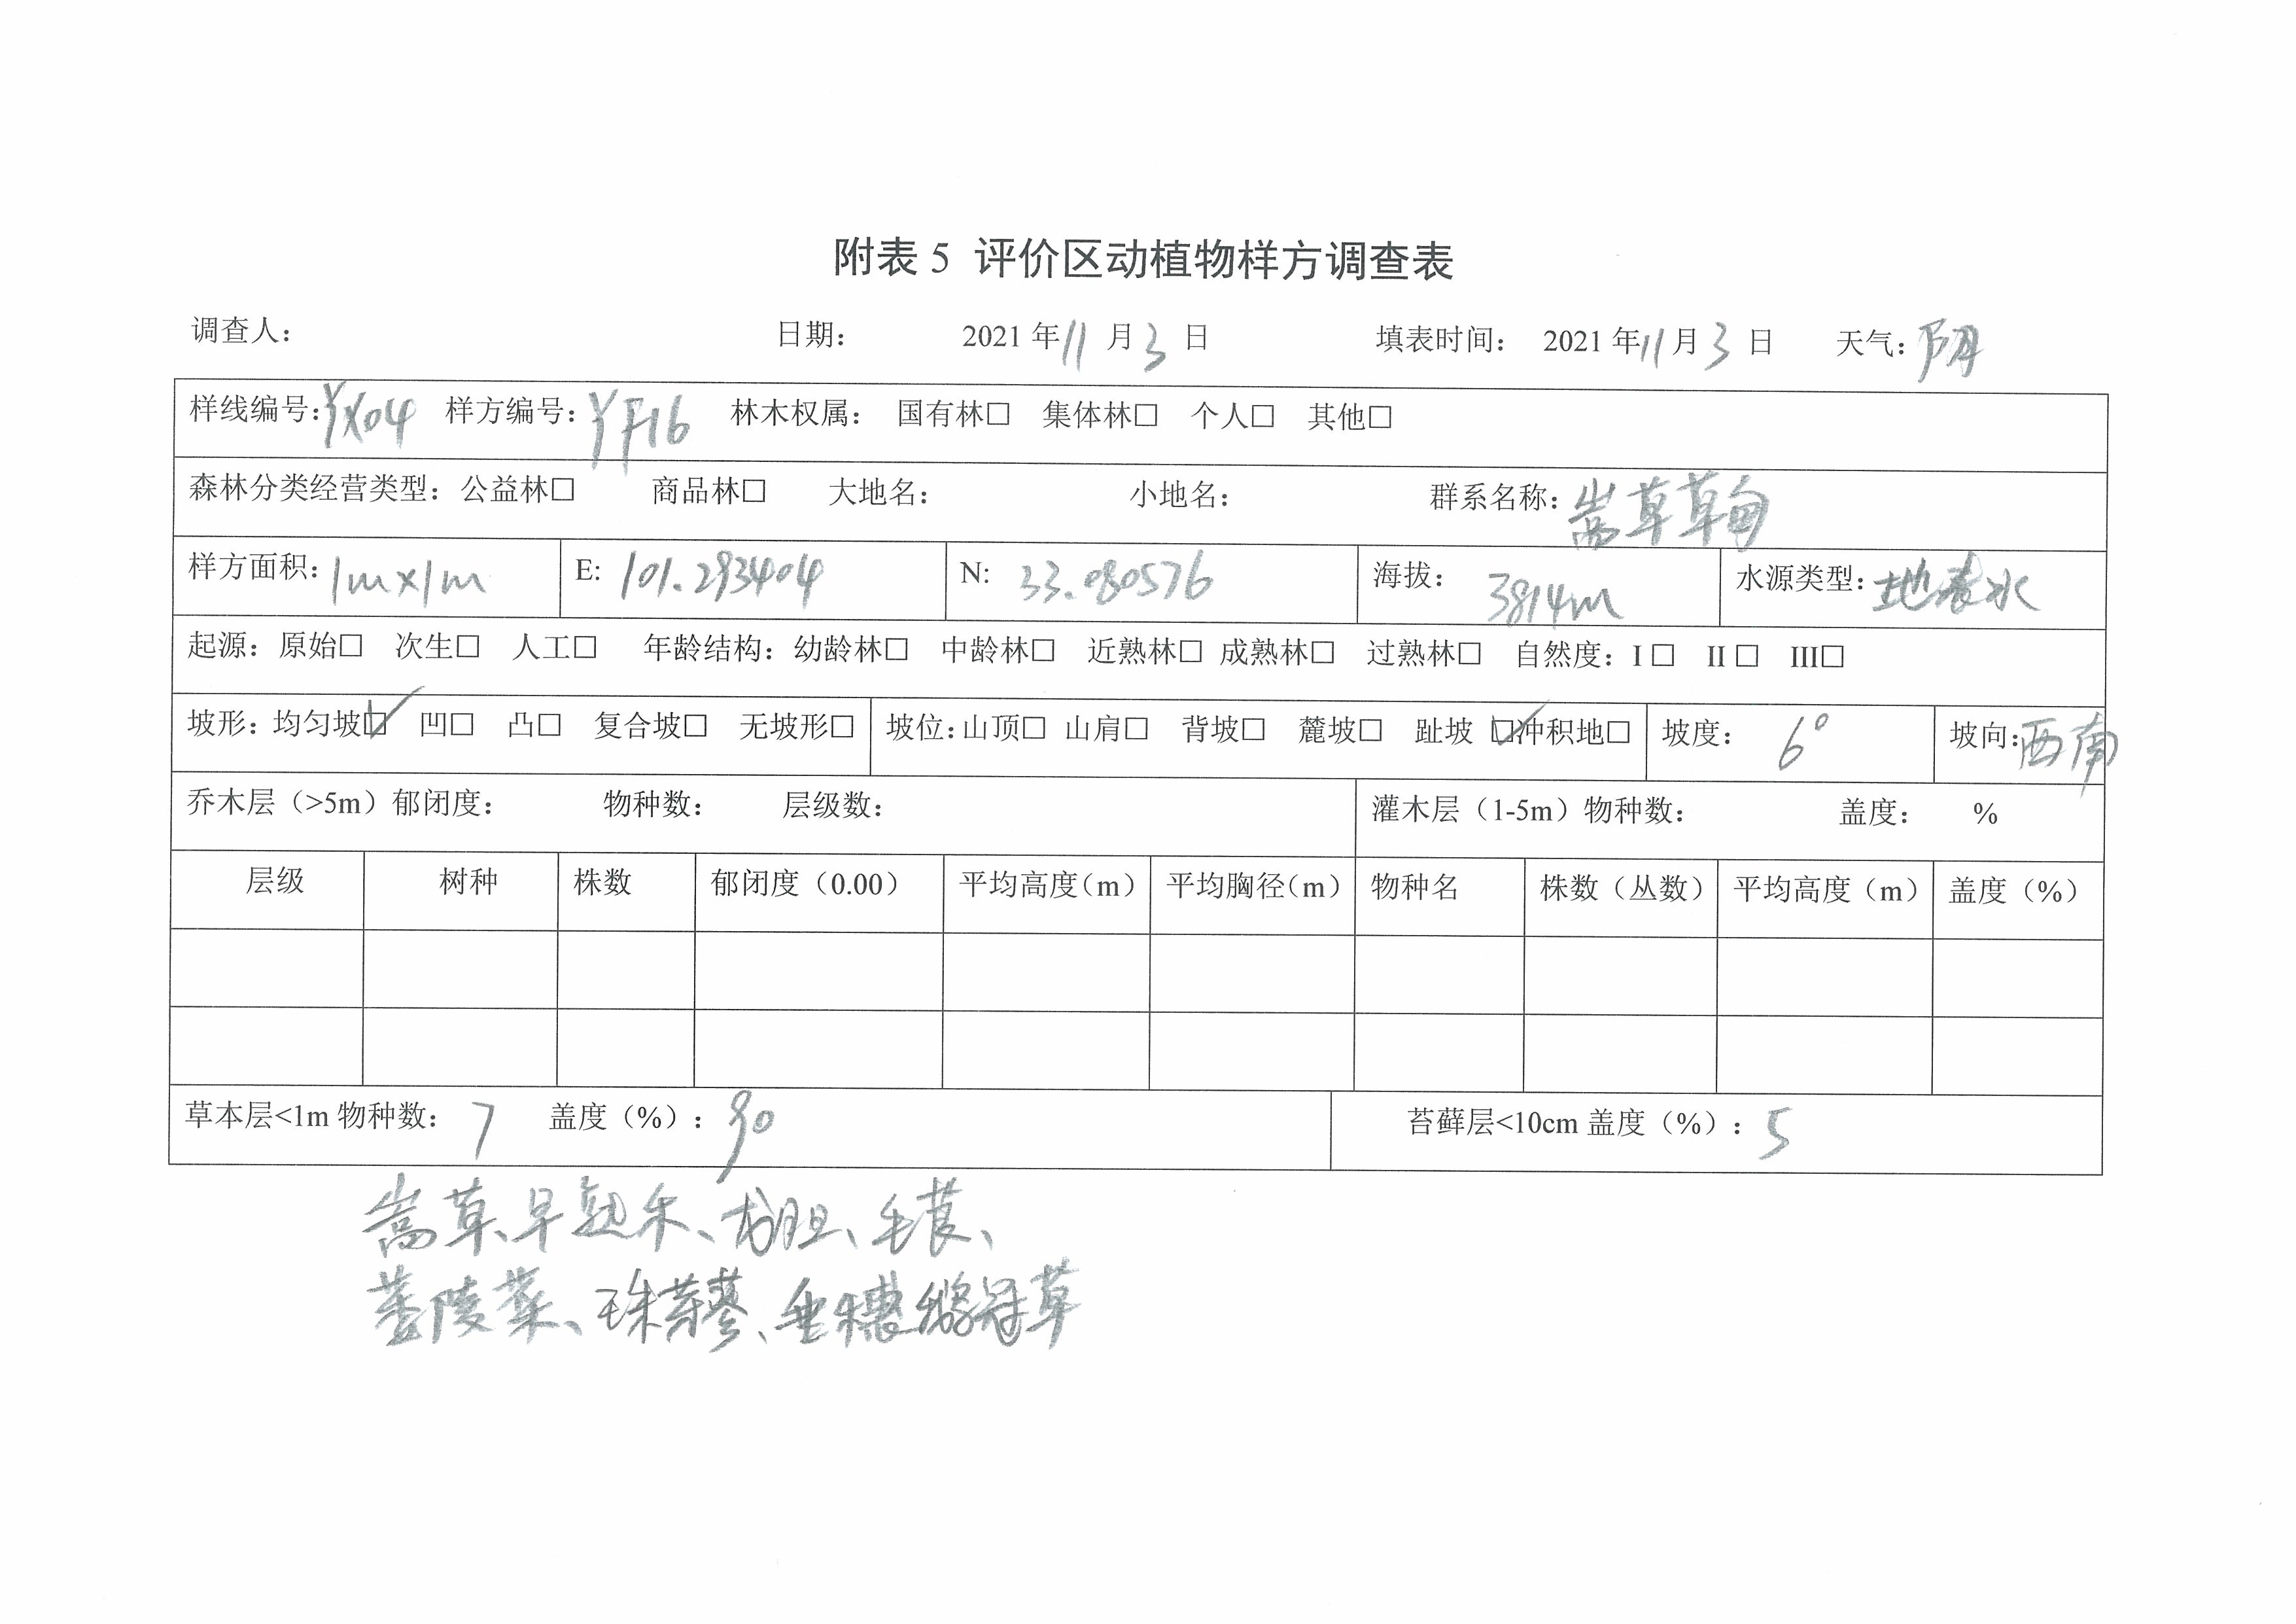 附表 5 评价区动植物样方调查表
调查人： 日期： 2021 年 11 月 3 日 填表时间： 2021 年 11 月 3 日 天气：阴
样线编号：YX04 样方编号：YF16 林木权属： 国有林□ 集体林□ 个人□ 其他□
森林分类经营类型：公益林□ 商品林□ 大地名： 小地名： 群系名称：嵩草草甸
样方面积：1m×1m E: 101.293404 N: 33.080576 海拔： 3814m 水源类型：地表水
起源：原始□ 次生□ 人工□ 年龄结构：幼龄林□ 中龄林□ 近熟林□ 成熟林□ 过熟林□ 自然度：I □ II □ III□
坡形：均匀坡☑ 凹□ 凸□ 复合坡□ 无坡形□ 坡位：山顶□ 山肩□ 背坡□ 麓坡□ 趾坡 ☑冲积地□ 坡度： 6° 坡向：西南
乔木层（>5m）郁闭度： 物种数： 层级数： 灌木层（1-5m）物种数： 盖度： %
层级 树种 株数 郁闭度（0.00） 平均高度（m） 平均胸径（m） 物种名 株数（丛数） 平均高度（m） 盖度（%）
草本层<1m 物种数： 7 盖度（%）：90 苔藓层<10cm 盖度（%）：5
嵩草、早熟禾、龙胆、毛茛、
萎陵菜、珠芽蓼、垂穗鹅冠草